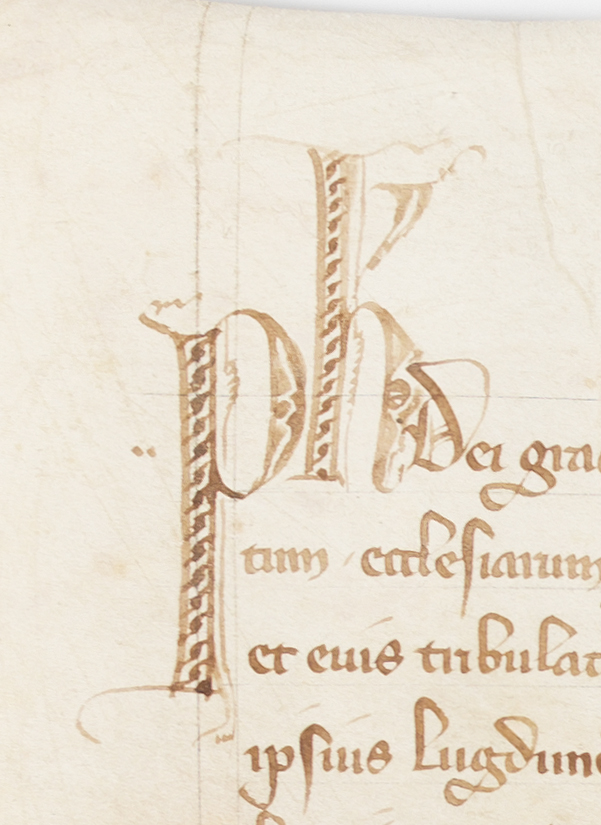 Ph Dei gra
tum ecclesiarum
et eius tribulat
ipsius Lugdune